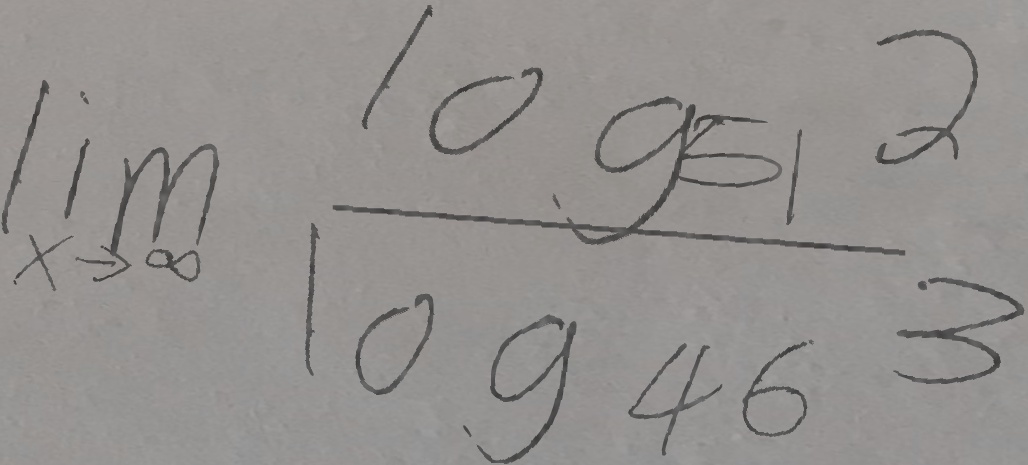 lim x→∞ log₅₁ 2
log₄₆ 3